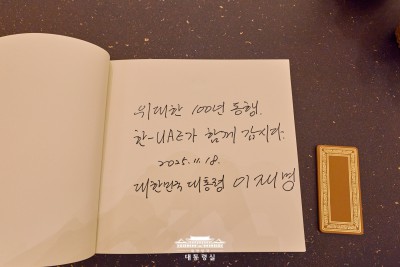 위대한 100년 동행.
한-UAE가 함께 갑시다.
2025. 11. 18.
대한민국 대통령 이재명
대통령실